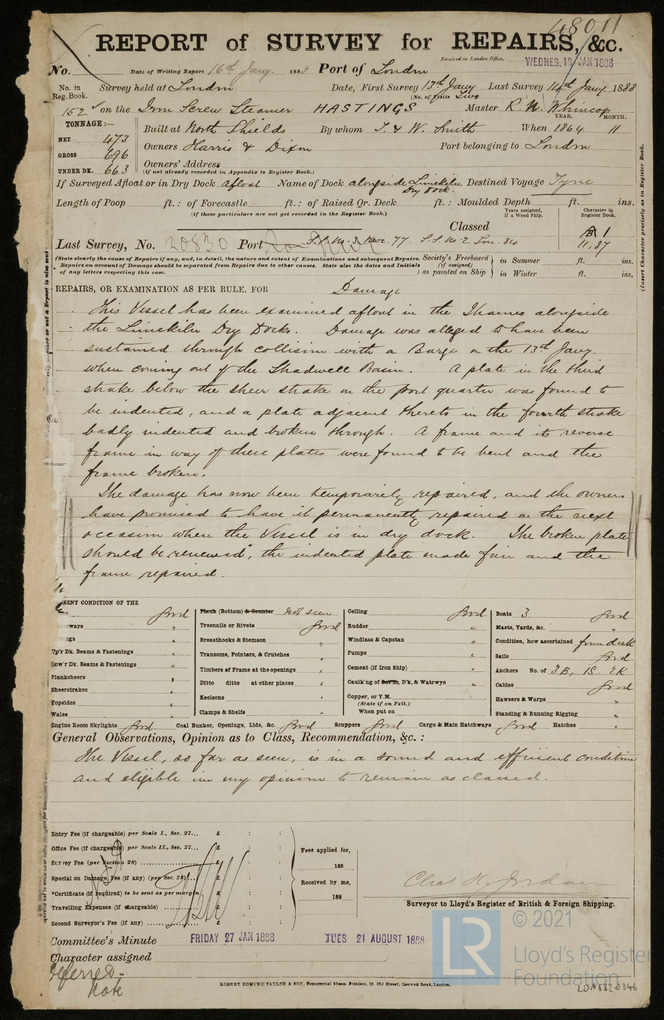 48011
REPORT of SURVEY for REPAIRS, &c.
Received in London Office,
No. Date of Writing Report 16th Jany. 1888 Port of London WEDNES. 18 JAN 1888
No. in Reg. Book. Survey held at London Date, First Survey 13th Jany Last Survey 14th Jany. 1888
(No. of Visits Two)
152 on the Iron Screw Steamer HASTINGS Master R. W.
TONNAGE:—
YEAR. MONTH.
NET 473 Built at North Shields By whom T. & W. Smith When 1864 11
GROSS 696 Owners Harris & Dixon Port belonging to London
UNDER DK. 663 Owners' Address
(if not already recorded in Appendix to Register Book.)
If Surveyed Afloat or in Dry Dock afloat Name of Dock alongside Limekiln Dry Dock. Destined Voyage Tyne
Length of Poop ft.: of Forecastle ft.: of Raised Qr. Deck ft.: Moulded Depth ft. ins.
(if these particulars are not yet recorded in the Register Book.)
Years assigned, if a Wood Ship. Character in Register Book.
Classed A 1
Last Survey, No. 20830 Port 77 S.S. No 2 84 11,87
(State clearly the cause of Repairs if any, and, in detail, the nature and extent of Examinations and subsequent Repairs. Repairs on account of Damage should be separated from Repairs due to other causes. State also the dates and Initials of any letters respecting this case.
Society's Freeboard (if assigned) as painted on Ship } in Summer ft. ins.
in Winter ft. ins.
(Insert Character precisely as in Register Book.
REPAIRS, OR EXAMINATION AS PER RULE, FOR Damage
This Vessel has been examined afloat in the Thames alongside
the Limekiln Dry Docks. Damage was alleged to have been
sustained through collision with a Barge on the 13th Jany
when coming out of the Shadwell Basin. A plate in the third
strake below the sheer strake on the port quarter was found to
be indented, and a plate adjacent thereto in the fourth strake
badly indented and broken through. A frame and its reverse
frame in way of these plates were found to be bent and the
frame broken.
The damage has now been temporarily repaired, and the owners
have promised to have it permanently repaired on the next
occasion when the Vessel is in dry dock. The broken plate
should be renewed, the indented plate made fair and the
frame repaired.
ENT CONDITION OF THE
Good
Plank (Bottom) & Counter not seen
Ceiling Good
Boats 3 Good
ways "
Treenails or Rivets Good
Rudder "
Masts, Yards, &c. "
ngs "
Breasthooks & Stemson "
Windlass & Capstan "
Condition, how ascertained from deck
Up'r Dk. Beams & Fastenings "
Transoms, Pointers, & Crutches "
Pumps "
Sails Good
Low'r Dk. Beams & Fastenings "
Timbers of Frame at the openings "
Cement (if Iron Ship) "
Anchors No. of 3B, 1S, 2K
Planksheers "
Ditto ditto at other places "
Caulk'ng of Bot'm, D'k, & Watrwys "
Cables Good
Sheerstrakes "
Keelsons "
Copper, or Y.M. (State if on Felt.)
Hawsers & Warps "
Topsides "
Clamps & Shelfs "
When put on
Standing & Running Rigging "
Wales "
Engine Room Skylights Good Coal Bunker, Openings, Lids, &c. Good Scuppers Good Cargo & Main Hatchways Good Hatches "
General Observations, Opinion as to Class, Recommendation, &c.:
The Vessel, so far as seen, is in a sound and efficient condition
and eligible in my opinion to remain as classed.
Entry Fee (if chargeable) per Scale I., Sec. 27... £ : :
Office Fee (if chargeable) per Scale II., Sec. 27... £ : :
Survey Fee (per Section 28) ... £ : :
Special or Damage Fee (if any) (per Sec. 28) £ : :
Certificate (if required) to be sent as per margin £ : :
Travelling Expenses (if chargeable) ... £ : :
Second Surveyor's Fee (if any) ... £ : :
Fees applied for,
188
Received by me,
188
Chas H. Jordan
Surveyor to Lloyd's Register of British & Foreign Shipping.
Committee's Minute FRIDAY 27 JAN 1888 TUES 21 AUGUST 1888
Character assigned
Deferred-
Note
ROBERT EDMUND TAYLOR & SON, Commercial Steam Printers, 19, Old Street, Goswell Road, London.
LR
© 2021
Lloyd's Register
Foundation
LON882-0346